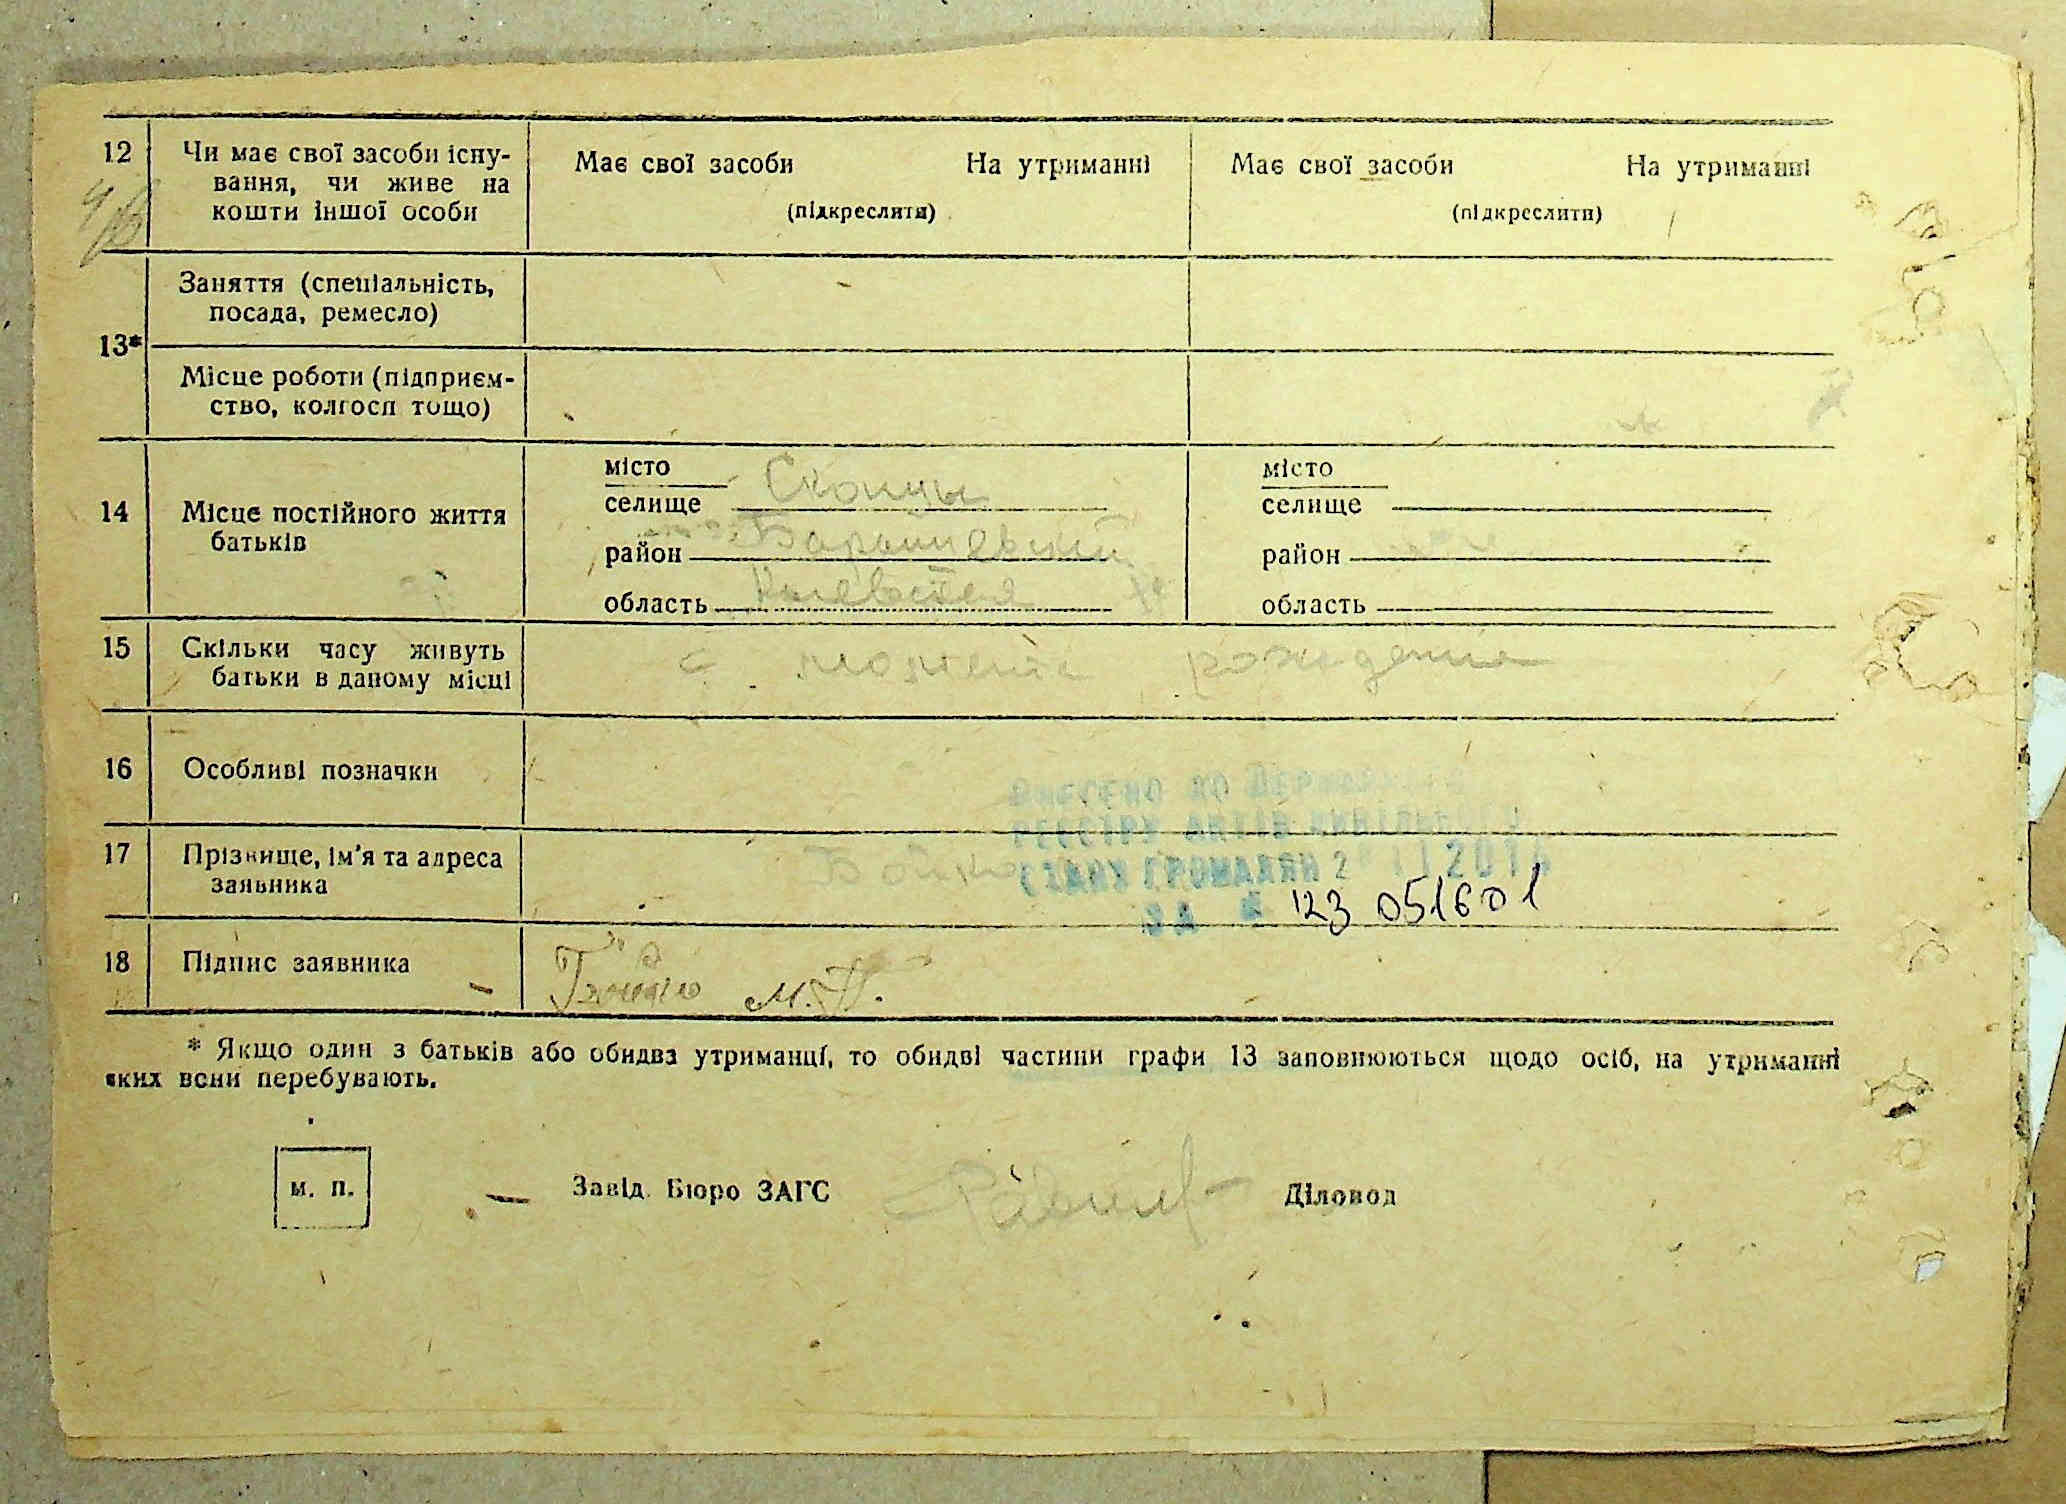 12 Чи має свої засоби існу- Має свої засоби На утриманні Має свої засоби На утриманні
вання, чи живе на
кошти іншої особи (підкреслити) (підкреслити)
Заняття (спеціальність,
посада, ремесло)
13*
Місце роботи (підприєм-
ство, колгосп тощо)
місто місто
селище Скопцы селище
14 Місце постійного життя
батьків
район Барышевский район
область Киевская область
15 Скільки часу живуть с момента рождения
батьки в даному місці
16 Особливі позначки
ВНЕСЕНО ДО ДЕРЖАВНОГО
РЕЄСТРУ АКТІВ ЦИВІЛЬНОГО
17 Прізвище, ім'я та адреса Бойко
СТАНУ ГРОМАДЯН
заявника
ЗА № 123 051601
18 Підпис заявника М.
* Якщо один з батьків або обидва утриманці, то обидві частини графи 13 заповнюються щодо осіб, на утриманні
яких вони перебувають.
м. п. Завід. Бюро ЗАГС Діловод